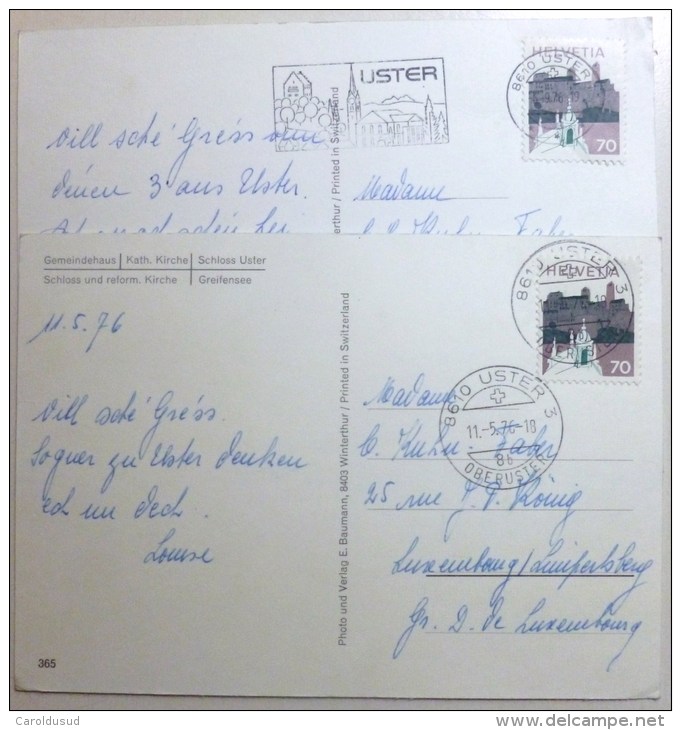 USTER
8610 USTER
HELVETIA
70
Vill sché Gréiss vun
denen 3 aus Uster.
Printed in Switzerland
Madame
Gemeindehaus | Kath. Kirche | Schloss Uster
Schloss und reform. Kirche | Greifensee
11.5.76
Vill sché Gréiss.
Soguer zu Uster denken
ech un Dech.
Louise
365
Photo und Verlag E. Baumann, 8403 Winterthur / Printed in Switzerland
8610 USTER 3
HELVETIA
70
8610 USTER 3
11.-5.76-18
8b
OBERUSTER
Madame
C. Kuhn-Faber
25 rue J. P. König
Luxembourg/Limpertsberg
Gr. D. de Luxembourg
Caroldusud
www.delcampe.net